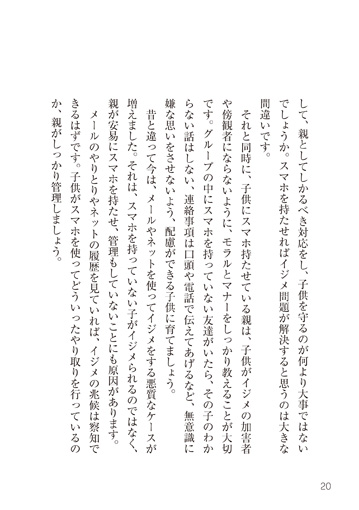 して、親としてしかるべき対応をし、子供を守るのが何より大事ではない
でしょうか。スマホを持たせればイジメ問題が解決すると思うのは大きな
間違いです。
それと同時に、子供にスマホ持たせている親は、子供がイジメの加害者
や傍観者にならないように、モラルとマナーをしっかり教えることが大切
です。グループの中にスマホを持っていない友達がいたら、その子のわか
らない話はしない、連絡事項は口頭や電話で伝えてあげるなど、無意識に
嫌な思いをさせないよう、配慮ができる子供に育てましょう。
昔と違って今は、メールやネットを使ってイジメをする悪質なケースが
増えました。それは、スマホを持っていない子がイジメられるのではなく、
親が安易にスマホを持たせ、管理もしていないことにも原因があります。
メールのやりとりやネットの履歴を見ていれば、イジメの兆候は察知で
きるはずです。子供がスマホを使ってどういったやり取りを行っているの
か、親がしっかり管理しましょう。
20